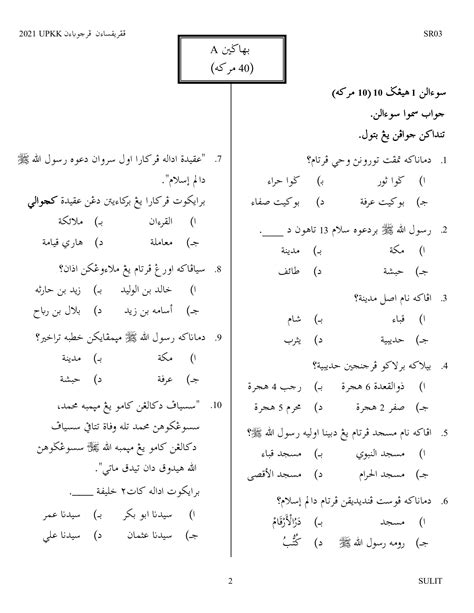 SR03
ڤڤريقساءن ڤرچوباءن UPKK 2021
بهاڬين A
(40 مركه)
سوءالن 1 هيڠڬ 10 (10 مركه)
جواب سموا سوءالن.
تنداکن جواڤن يڠ بتول.
1. دماناكه تمڤت تورونڽ وحي ڤرتام؟
ا) ݢوا ثور ب) ݢوا حراء
ج) بوكيت عرفة د) بوكيت صفاء
2. رسول الله ﷺ بردعوه سلام 13 تاهون د ____.
ا) مكة ب) مدينة
ج) حبشة د) طائف
3. اڤاكه نام اصل مدينة؟
ا) قباء ب) شام
ج) حديبية د) يثرب
4. بيلاكه برلاكو ڤرجنجين حديبية؟
ا) ذوالقعدة 6 هجرة ب) رجب 4 هجرة
ج) صفر 2 هجرة د) محرم 5 هجرة
5. اڤاكه نام مسجد ڤرتام يڠ دبينا اوليه رسول الله ﷺ؟
ا) مسجد النبوي ب) مسجد قباء
ج) مسجد الحرام د) مسجد الأقصى
6. دماناكه ڤوست ڤنديديقن ڤرتام دالم إسلام؟
ا) مسجد ب) دَارُالْأَرْقَامْ
ج) رومه رسول الله ﷺ د) كُتُّبُ
7. "عقيدة اداله ڤركارا اول سروان دعوه رسول الله ﷺ
دالم إسلام".
برايكوت ڤركارا يڠ بركاءيتن دڠن عقيدة كچوالي
ا) القرءان ب) ملائكة
ج) معاملة د) هاري قيامة
8. سياڤاكه اورڠ ڤرتام يڠ ملاءوڠكن اذان؟
ا) خالد بن الوليد ب) زيد بن حارثه
ج) أسامه بن زيد د) بلال بن رباح
9. دماناكه رسول الله ﷺ مڽمڤايكن خطبه تراخير؟
ا) مكة ب) مدينة
ج) عرفة د) حبشة
10. "سسياڤ دكالڠن كامو يڠ مڽمبه محمد،
سسوڠݢوهن محمد تله وفاة تتاڤي سسياڤ
دكالڠن كامو يڠ مڽمبه الله ﷻ سسوڠݢوهن
الله هيدوق دان تيدق ماتي".
برايكوت اداله كات٢ خليفة ____.
ا) سيدنا ابو بكر ب) سيدنا عمر
ج) سيدنا عثمان د) سيدنا علي
2
SULIT